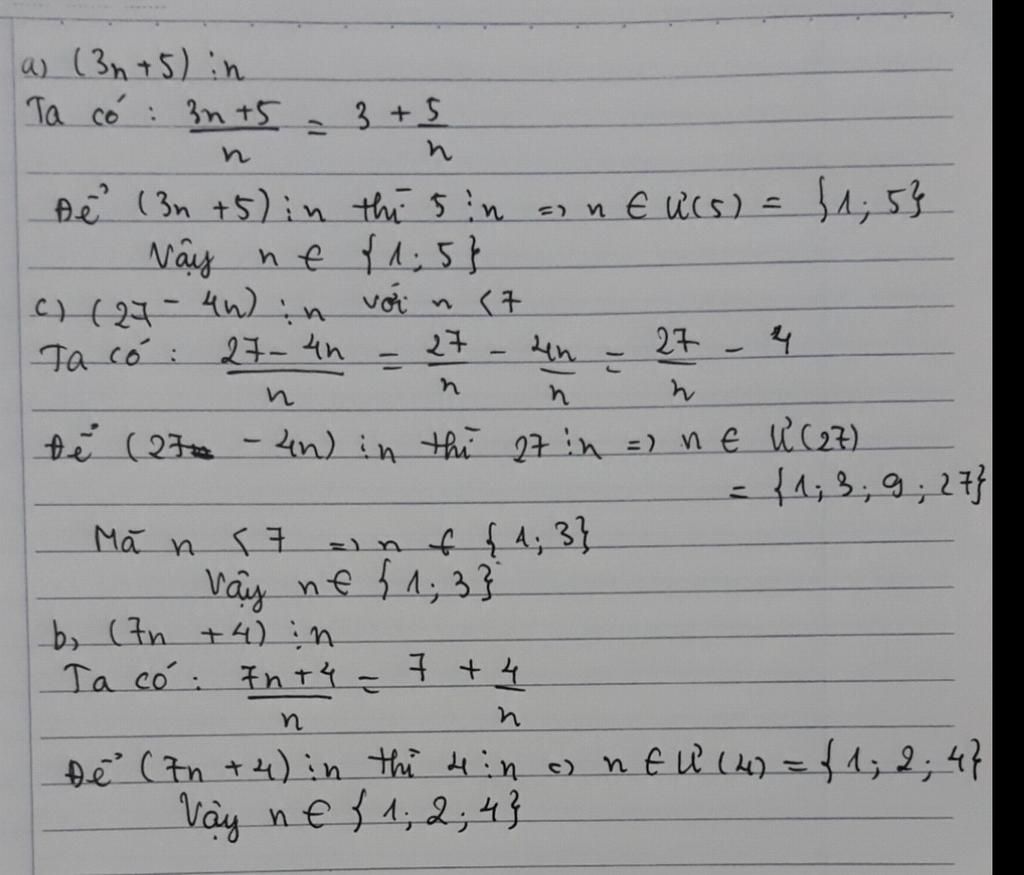 a) (3n+5) ⋮ n
Ta có : \frac{3n+5}{n} = 3 + \frac{5}{n}
Để (3n+5) ⋮ n thì 5 ⋮ n => n ∈ Ư(5) = {1; 5}
Vậy n ∈ {1; 5}
c) (27 - 4n) ⋮ n với n < 7
Ta có : \frac{27-4n}{n} = \frac{27}{n} - \frac{4n}{n} = \frac{27}{n} - 4
Để (27 - 4n) ⋮ n thì 27 ⋮ n => n ∈ Ư(27)
= {1; 3; 9; 27}
Mà n < 7 => n ∈ {1; 3}
Vậy n ∈ {1; 3}
b, (7n +4) ⋮ n
Ta có : \frac{7n+4}{n} = 7 + \frac{4}{n}
Để (7n +4) ⋮ n thì 4 ⋮ n => n ∈ Ư(4) = {1; 2; 4}
Vậy n ∈ {1; 2; 4}